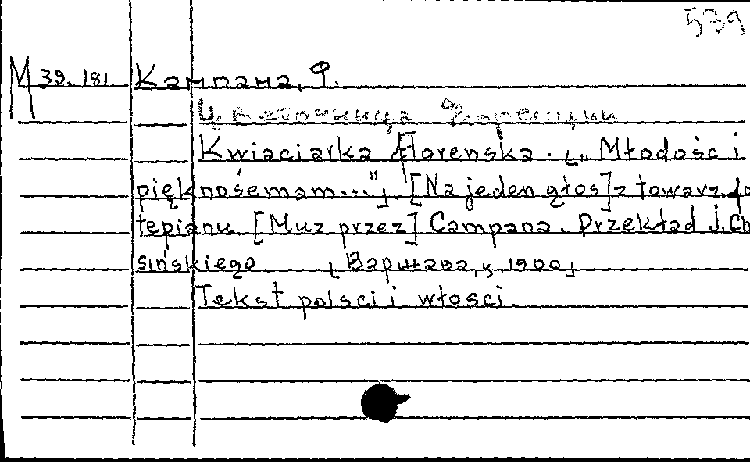 539
M 39.181 Кампана, Ф.
Цветочница Флоренции
Kwiaciarka florenska. [„Młodość i
pięknośemam..."]. [Na jeden głos] z towarz. fo
tepianu. [Muz przez] Campana. Przekład J. Ch
sińskiego [Варшава, 1900]
Tekst polsci i włosci.